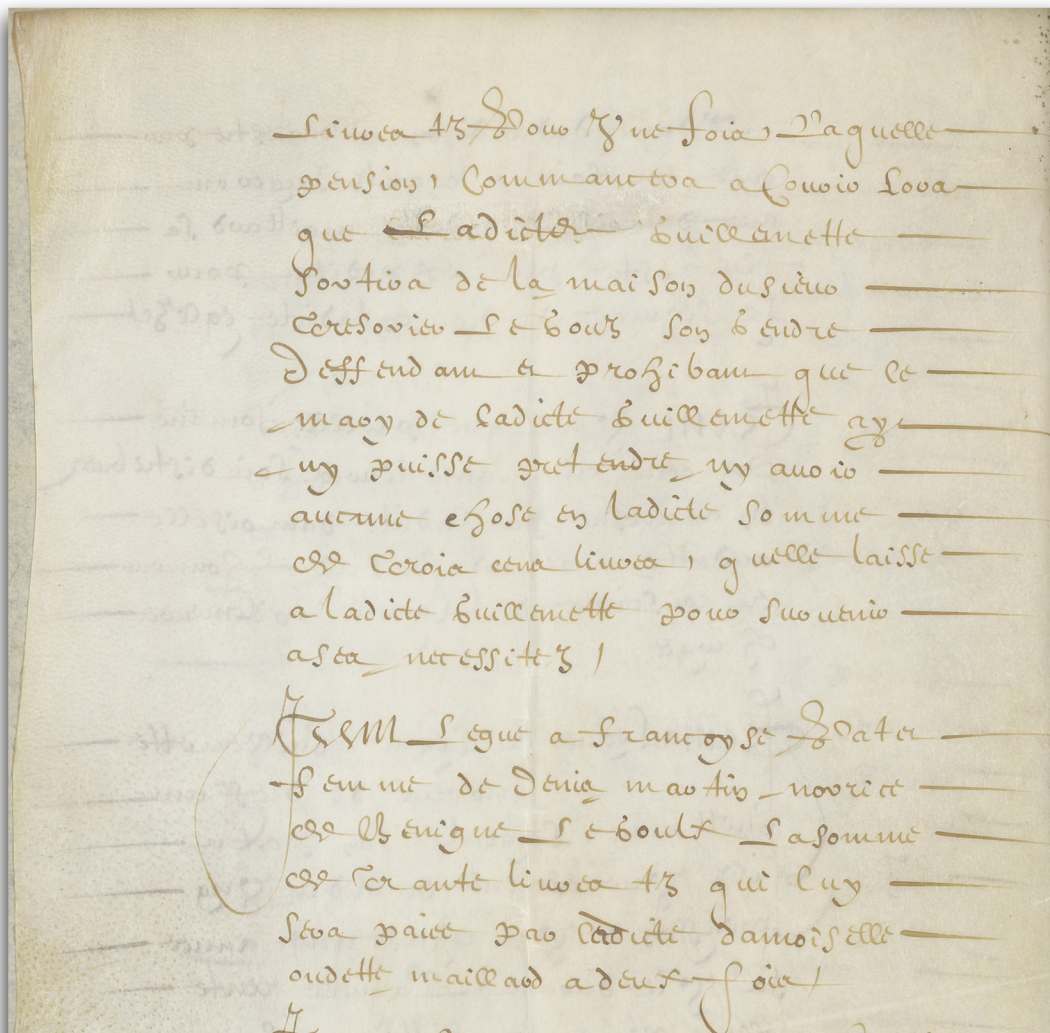 Livres tz pour une fois, Laquelle
pension, Commancera a Courir Lors
que Ladicte Guillemette
sortira de la maison dusieur
Tresorier Le Gouz son Gendre
Deffendant et prohibant que le
mary de Ladicte Guillemette
ny puisse pretendre ny avoir
aucune chose en ladicte somme
de Trois cens livres, quelle laisse
a ladicte Guillemette pour survenir
a ses necessitez /
Item Legue a Françoyse
femme de Denis martin norrice
de Benigne Le Goulx La somme
de Trante livres tz qui luy
sera paiee par Ladicte damoiselle
oudette maillard a deux fois /